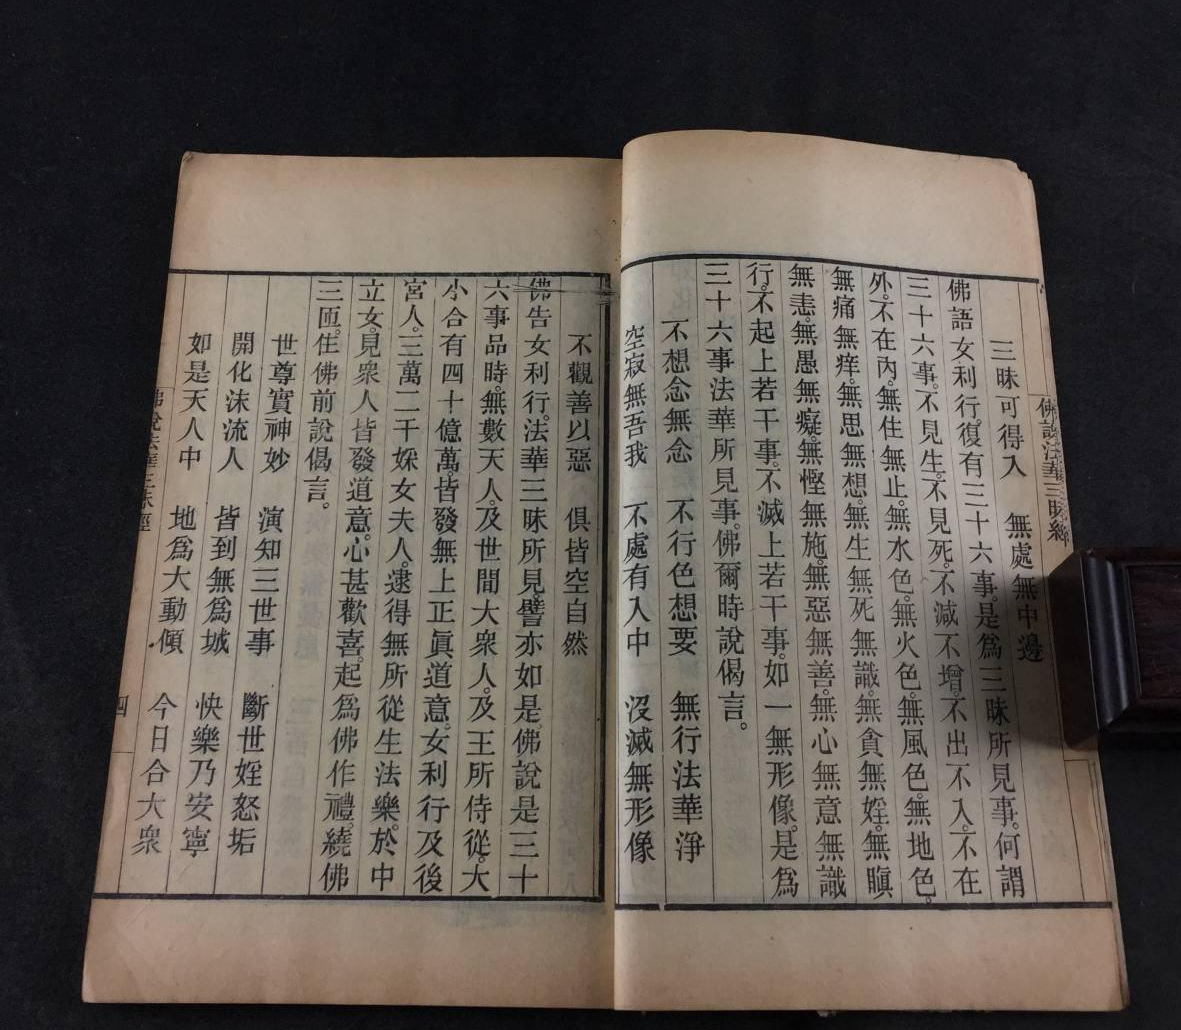 三昧可得入　無處無中邊
佛語女利行。復有三十六事。是爲三昧所見事。何謂
三十六事。不見生。不見死。不減不增。不出不入。不在
外。不在內。無住無止。無水色。無火色。無風色。無地色。
無痛無痒。無思無想。無生無死無識。無貪無婬。無瞋
無恚。無愚無癡。無慳無施。無惡無善。無心無意無識
行。不起上若干事。不滅上若干事。如一無形像。是爲
三十六事法華所見事。佛爾時說偈言。
不想念無念　不行色想要　無行法華淨
空寂無吾我　不處有入中　沒滅無形像
不觀善以惡　俱皆空自然
佛告女利行。法華三昧所見譬亦如是佛說是三十
六事品時。無數天人。及世間大衆人。及王所侍從。大
小合有四十億萬。皆發無上正眞道意。女利行及後
宮人。三萬二千婇女夫人。逮得無所從生法樂。於中
立女。見衆人皆發道意。心甚歡喜。起爲佛作禮。繞佛
三匝。住佛前說偈言。
世尊實神妙　演知三世事　斷世婬怒垢
開化沫流人　皆到無爲城　快樂乃安寧
如是天人中　地爲大動傾　今日合大衆
佛說法華三昧經
四